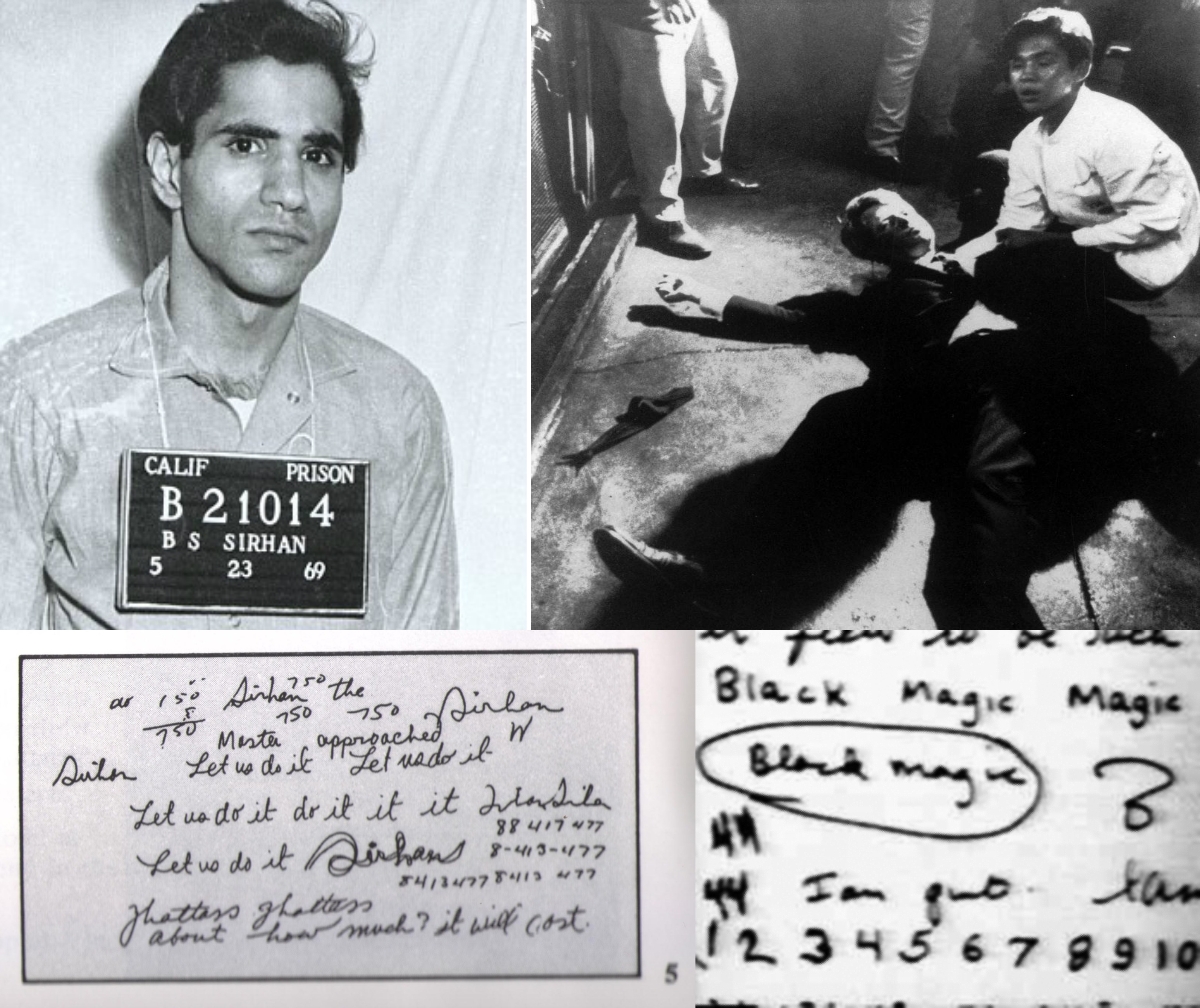 CALIF PRISON
B 21014
B S SIRHAN
5 23 69
150 Sirhan 750 the
5
750 750 750 Sirhan
Master approached W
Sirhan Let us do it Let us do it
Let us do it do it it it
88 417 477
Let us do it Sirhans 8-413-477
8413477 8413 477
ghattass ghattass
about how much? it will cost.
5
to be such
Black Magic Magic
Black magic
44
44 I am
1 2 3 4 5 6 7 8 9 10